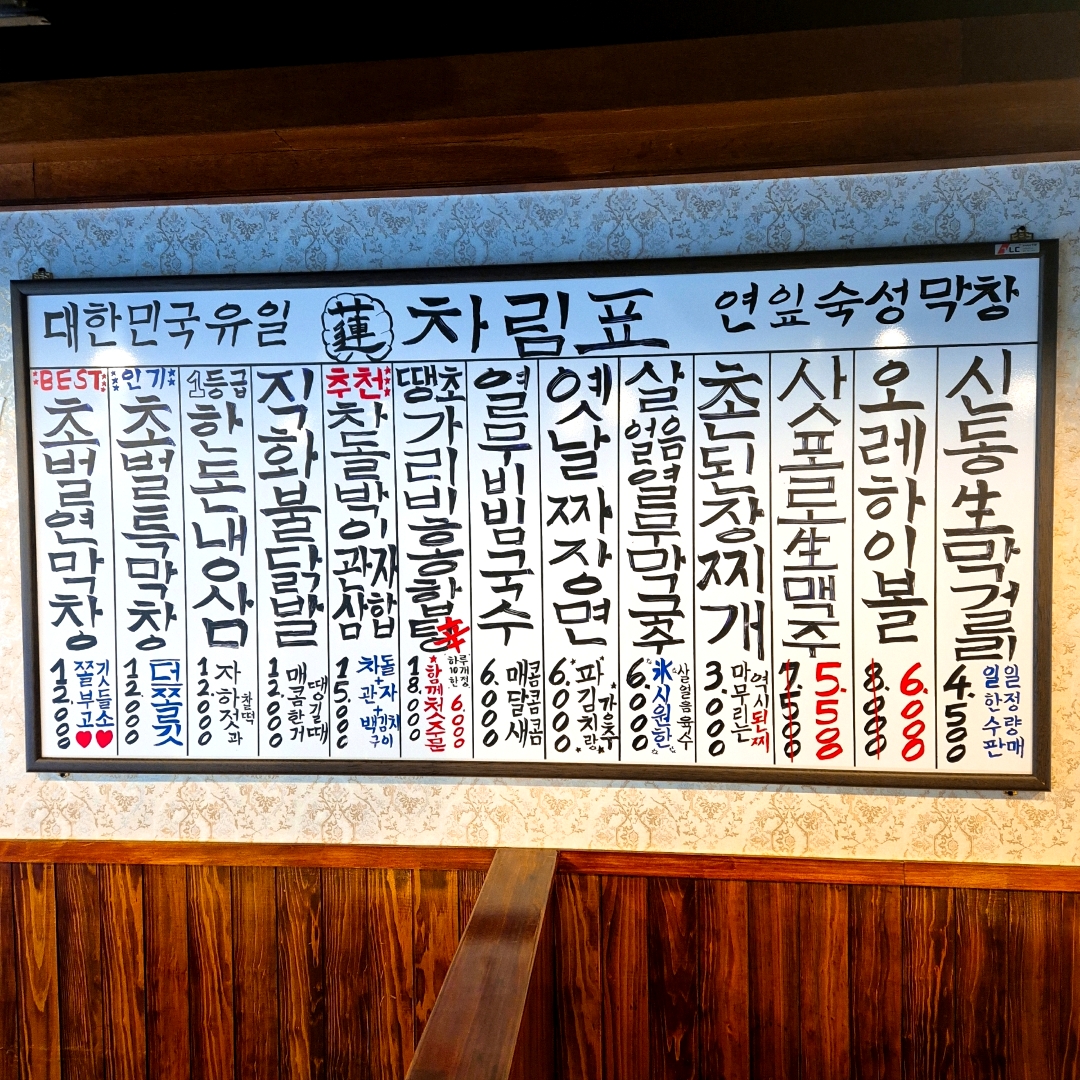 대한민국유일 蓮 차림표 연잎숙성막창
BEST
초벌연막창
12.000
쫄깃
부들
고소
인기
초벌특막창
12.000
더쫄깃
1등급
한돈내장삼
12.000
자하젓과
찰떡
직화불닭발
12.000
매콤한거
땡길때
추천
차돌박이관자삼합
15.000
차돌
+
관자
+
백김치
구이
땡초가리비홍합탕
18.000
하루
10개
한정
함께첫주문
6.000
열무비빔국수
6.000
매콤
달콤
새콤
옛날짜장면
6.000
파김치랑
가을추
살얼음열무막국수
6.000
氷시원한
살얼음육수
촌된장찌개
3.000
마무리는
역시된찌
삿포로生맥주
7.500
5.500
오레하이볼
8.000
6.000
신동生막걸리
4.500
일일
한정
수량
판매
LC